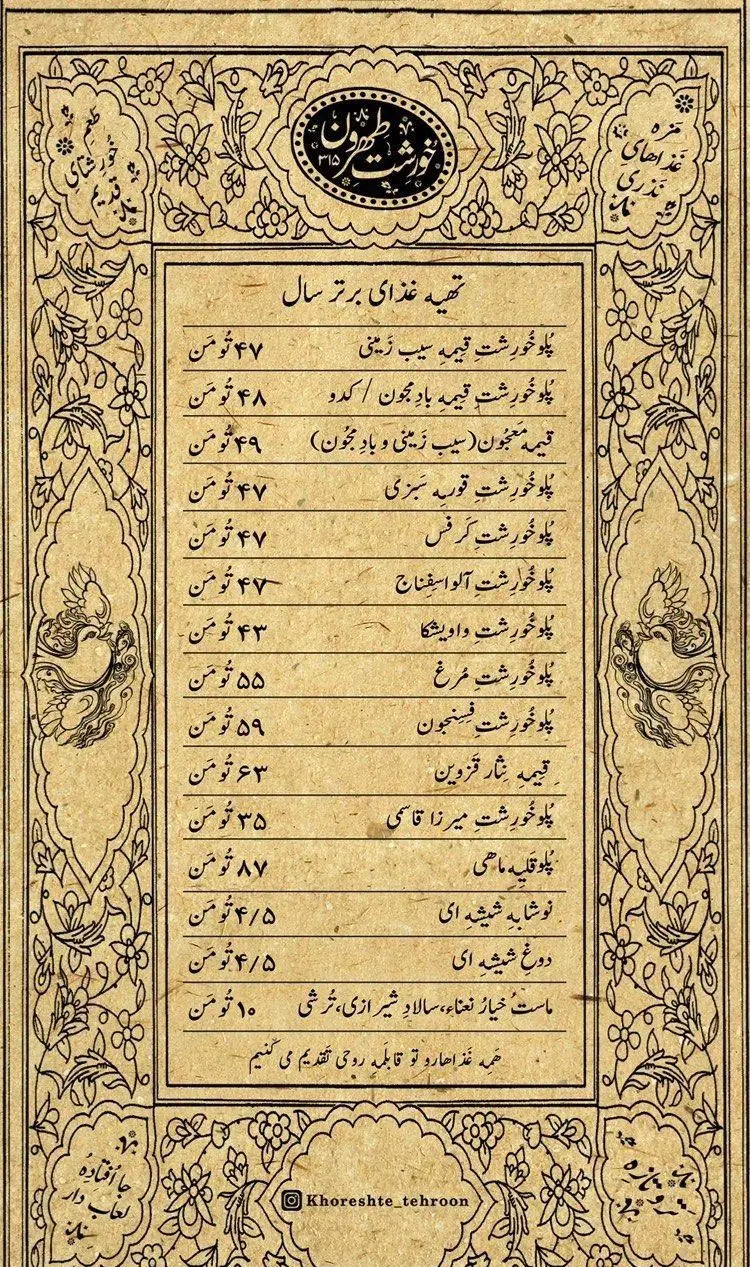 خورشت طهرون
۳۱۵
مزه
غذاهای
نذری
طعم
خورشتای
قدیم
تهیه غذای برتر سال
پُلوخُورِشتِ قِیمه سیب زَمینی ۴۷ تُومَن
پُلوخُورِشتِ قِیمه بادِمجون / کدو ۴۸ تُومَن
قیمه مَعجُون(سیب زَمینی و بادِمجُون) ۴۹ تُومَن
پُلوخُورِشتِ قورمه سَبزی ۴۷ تُومَن
پُلوخُورِشتِ کَرَفس ۴۷ تُومَن
پُلوخُورِشتِ آلو اسفِناج ۴۷ تُومَن
پُلوخُورِشتِ واویشکا ۴۳ تُومَن
پُلوخُورِشتِ مُرغ ۵۵ تُومَن
پُلوخُورِشتِ فِسِنجون ۵۹ تُومَن
قِیمه نِثار قَزوین ۶۳ تُومَن
پُلوخُورِشتِ میرزا قاسمی ۳۵ تُومَن
پُلوقَلیه ماهی ۸۷ تُومَن
نوشابه شیشه ای ۴/۵ تُومَن
دوغ شیشه ای ۴/۵ تُومَن
ماست خیارُ نعناء،سالادِ شیرازی،تُرشی ۱۰ تُومَن
هَمِه غَذاهارو تو قابلَمِه روحی تَقدیم می کُنیم
جا اُفتادهُ
لعاب دار
Khoreshte_tehroon